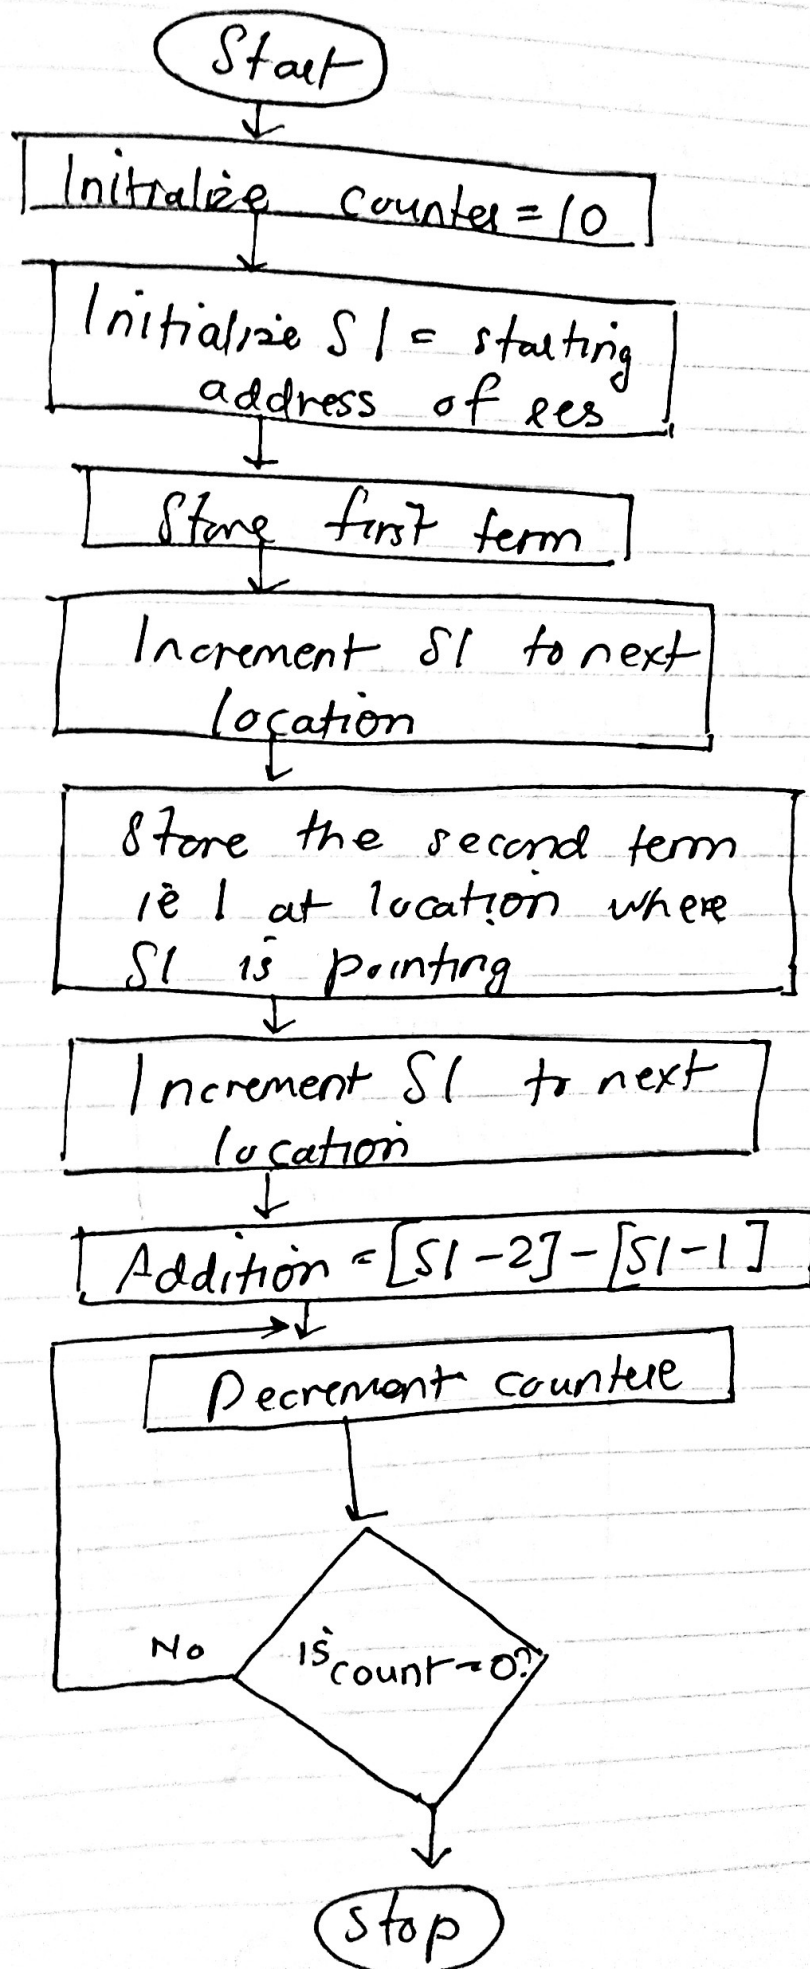 Start
Initialize counter = 10
Initialize SI = starting
address of res
Store first term
Increment SI to next
location
Store the second term
ie 1 at location where
SI is pointing
Increment SI to next
location
Addition = [SI-2]-[SI-1]
Decrement counter
No
is count=0?
stop